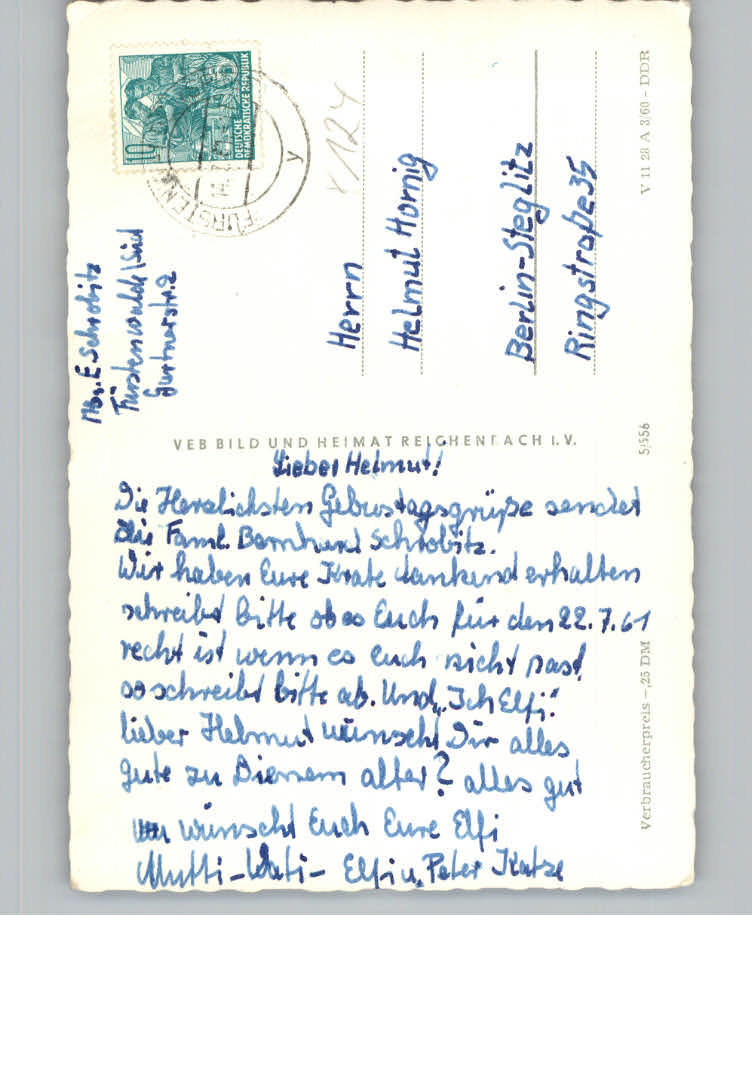 10
DEUTSCHE
DEMOKRATISCHE REPUBLIK
FÜRSTENW
y
Y124
E. Schrobitz
Fürstenwalde/Süd
Gartnerstr. 2
Herrn
Helmut Hornig
Berlin-Steglitz
Ringstraße 35
V 11 28 A 3/60 - DDR
VEB BILD UND HEIMAT REICHENBACH I. V.
5/556
Verbraucherpreis -,25 DM
Lieber Helmut!
Die Herzlichsten Geburstagsgrüße sendet
Dir Faml. Bernhard Schrobitz.
Wir haben Eure Krate dankend erhalten
schreibt bitte ob es Euch für den 22.7.61
recht ist wenn es euch nicht past,
so schreibt bitte ab. Und „Ich Elfi."
lieber Helmut wünscht Dir alles
gute zu Diensem alter? alles gut
wünscht Euch Eure Elfi
Mutti - Vati - Elfi u. Peter Katze